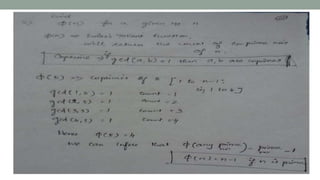 φ(n) for a given no n
φ(n) → Euler's totient function,
will return the count of coprime nos
of n.
Coprime → if gcd(a, b) = 1 then a, b are coprimes
φ(5) → coprimes of 5 [1 to n-1]
gcd(1,5) = 1 count = 1
gcd(2,5) = 1 count = 2
gcd(3,5) = 1 count = 3
gcd(4,5) = 1 count = 4
Hence φ(5) = 4
we can infer that φ(any prime no) = prime no - 1
φ(n) = n-1 if n is prime